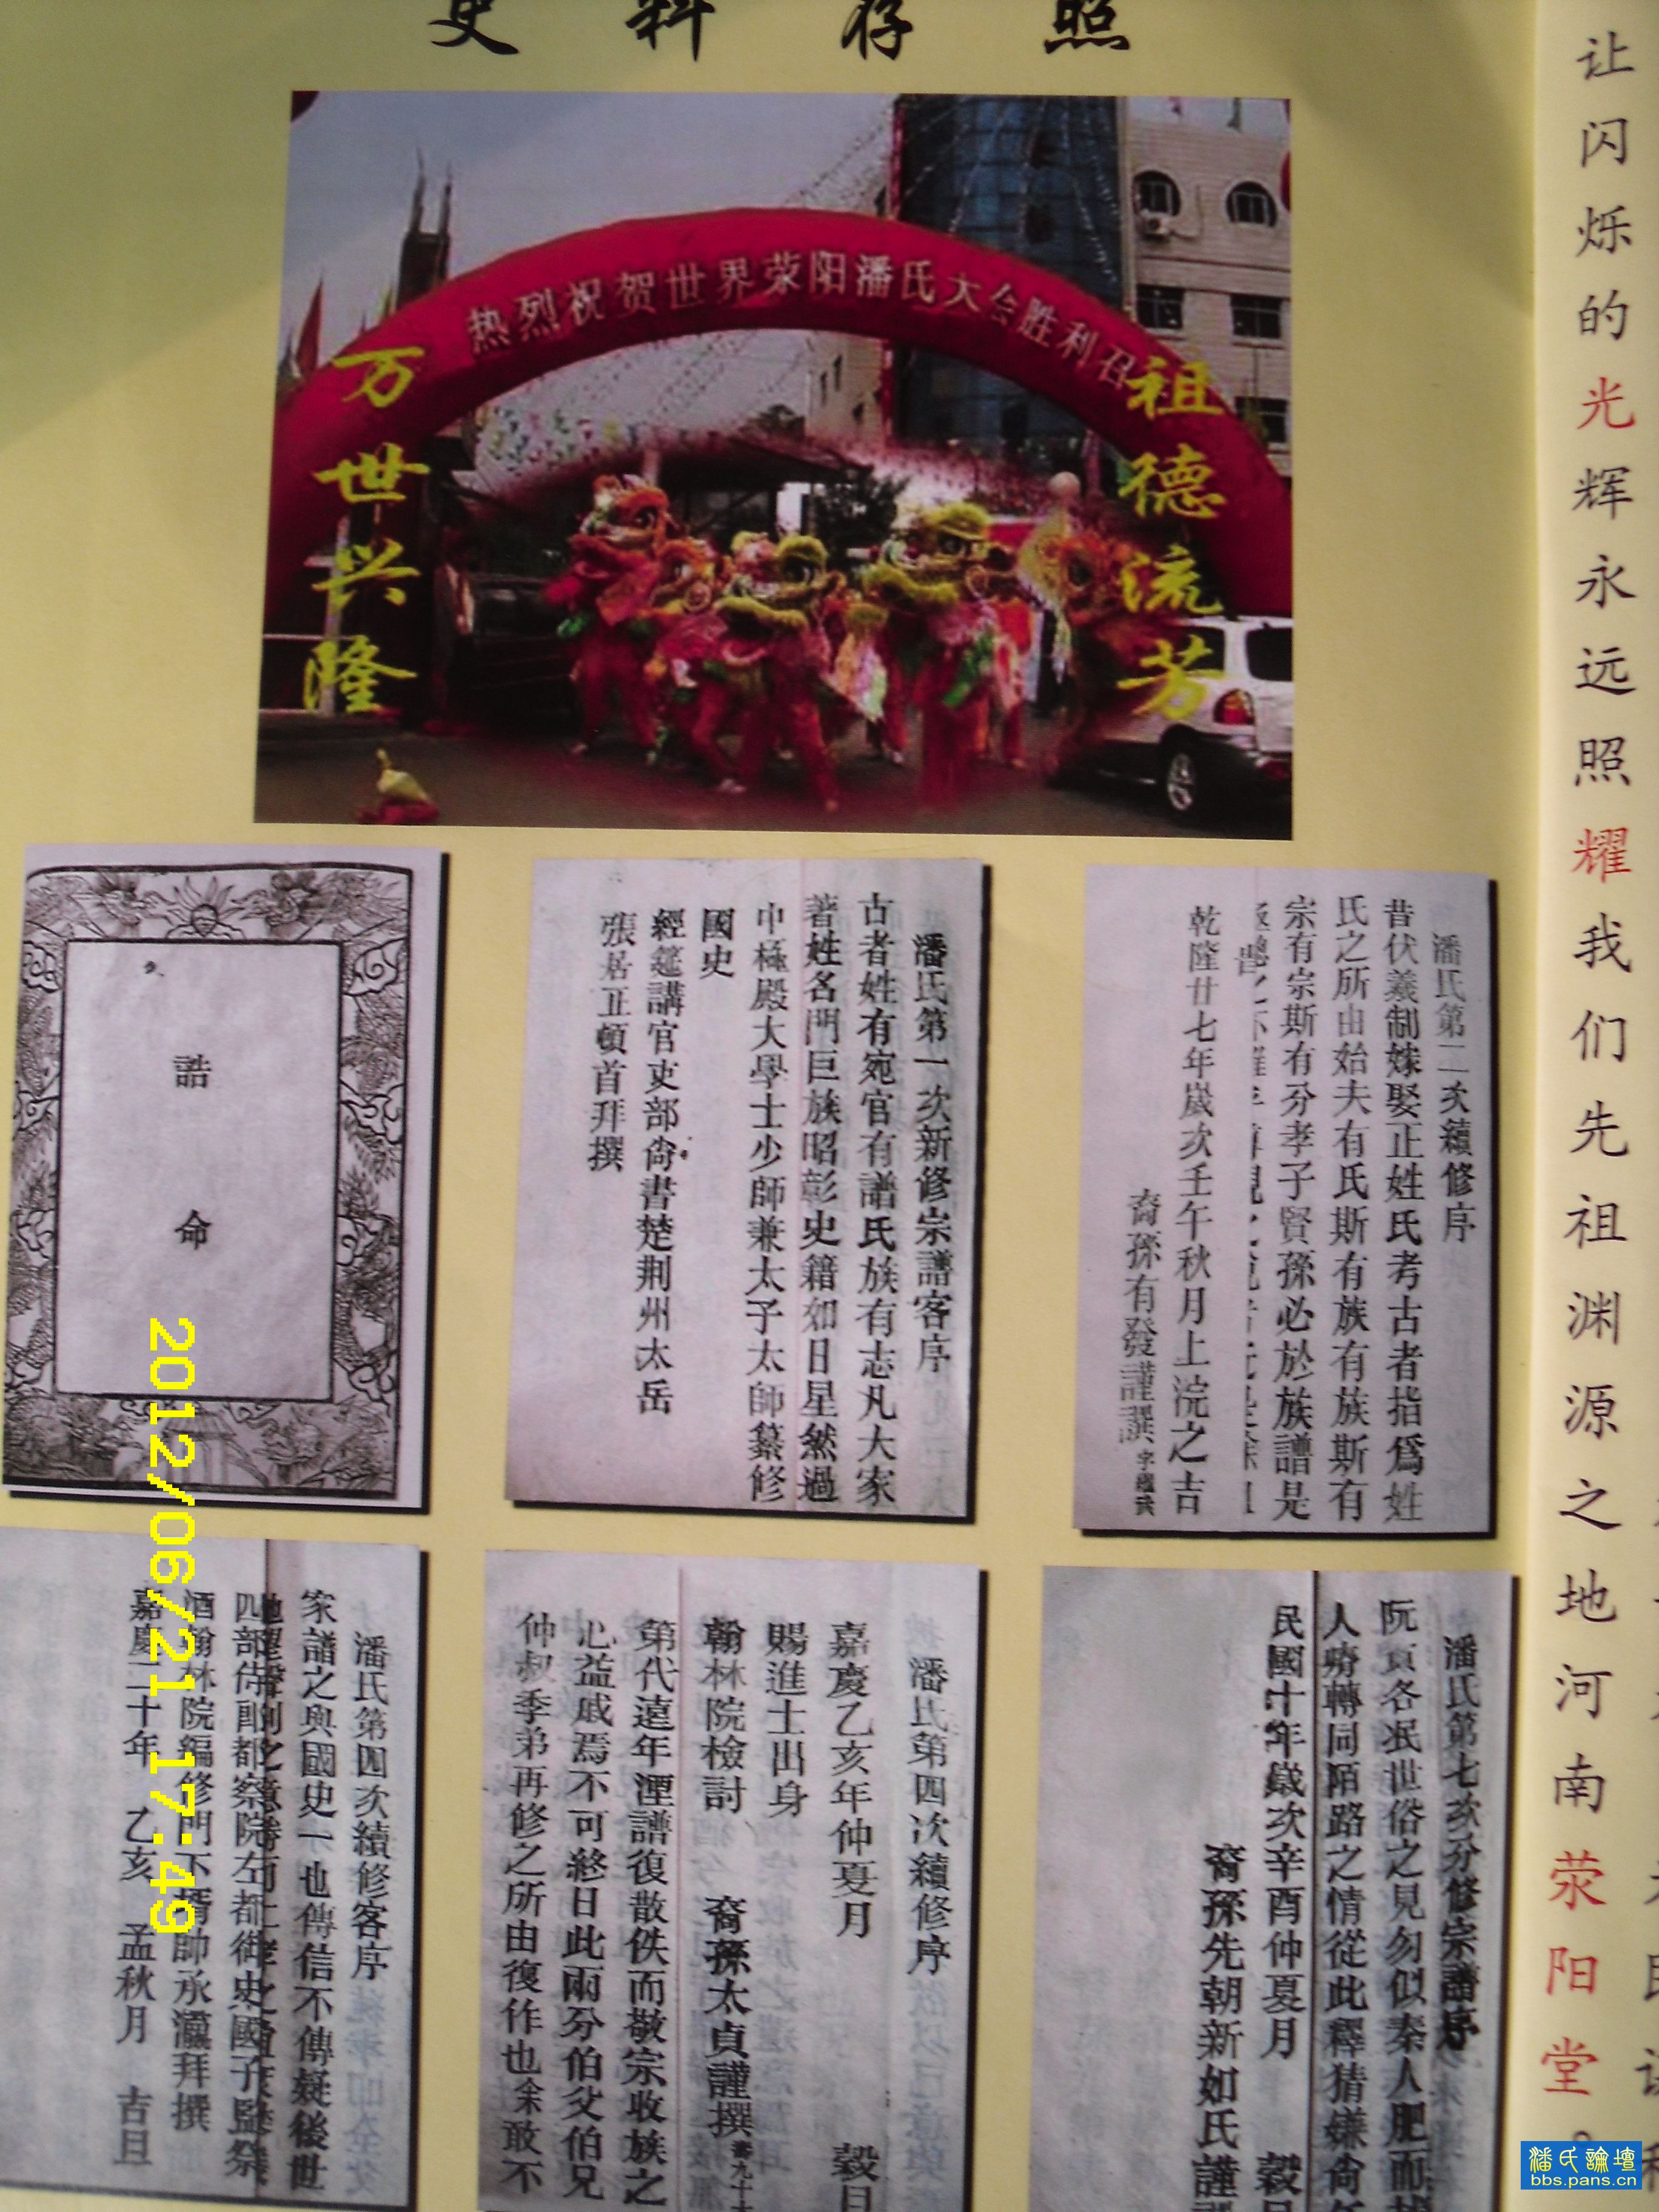 史料存照
热烈祝贺世界荥阳潘氏大会胜利召
万世兴隆
祖德流芳
诰
命
潘氏第一次新修宗譜客序
古者姓有宛官有譜氏族有志凡大家
著姓名門巨族昭彰史籍如日星然過
中極殿大學士少師兼太子太師纂修
國史
經筵講官吏部尚書楚荆州太岳
張居正頓首拜撰
潘氏第二次續修序
昔伏羲制嫁娶正姓氏考古者指爲姓
氏之所由始夫有氏斯有族有族斯有
宗有宗斯有分孝子賢孫必於族譜是
乾隆廿七年歲次壬午秋月上浣之吉
裔孫有發謹譔
潘氏第四次續修客序
家譜之與國史一也傳信不傳疑後世
酒翰林院編修門下壻帥承瀛拜撰
嘉慶二十年 乙亥 孟秋月 吉旦
潘氏第四次續修序
嘉慶乙亥年仲夏月 穀旦
賜進士出身
翰林院檢討 裔孫太貞謹撰
第代遠年湮譜復散佚而敬宗收族之
心益戚焉不可終日此兩分伯父伯兄
仲叔季弟再修之所由復作也余敢不
潘氏第七次分修宗譜序
阮貢各泯世俗之見勿似秦人肥而
人瘠轉同陌路之情從此釋猜嫌尙
民國十年歲次辛酉仲夏月 穀
裔孫先朝新如氏謹
让闪烁的光辉永远照耀我们先祖渊源之地河南荥阳堂。
2012/06/21 17:49
潘氏論壇
bbs.pans.cn